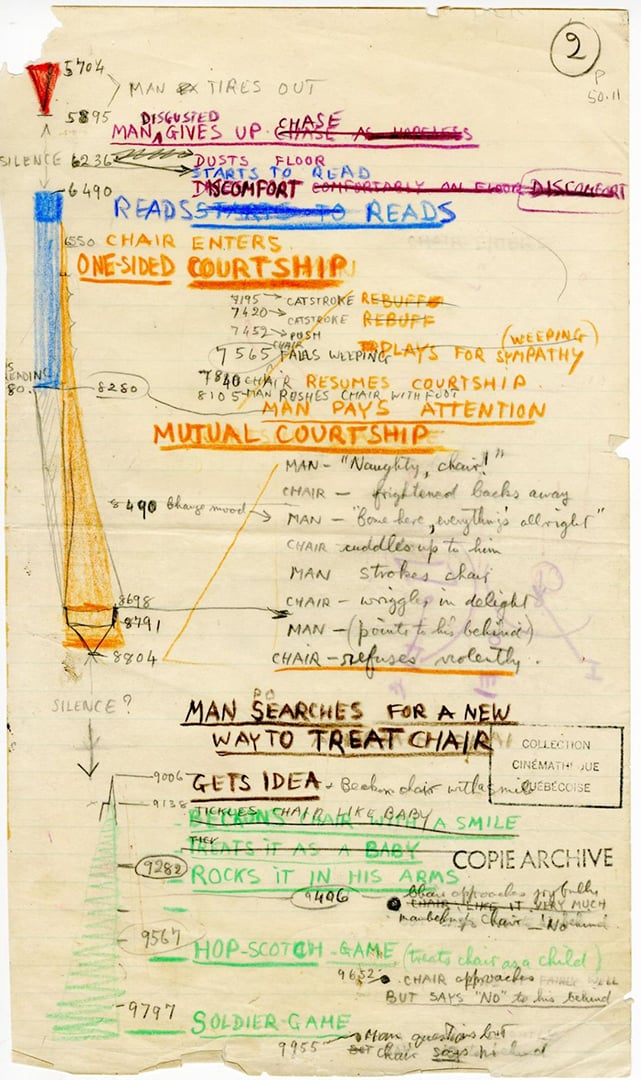 2
P
50.11
5704
MAN TIRES OUT
5895
MAN DISGUSTED GIVES UP CHASE CHASE AS HOPELESS
SILENCE 6236 DUSTS FLOOR
STARTS TO READ
6490 DISCOMFORT COMFORTABLY ON FLOOR DISCOMFORT
READS STARTS TO READS
6550 CHAIR ENTERS.
ONE-SIDED COURTSHIP
7195 → CATSTROKE REBUFFS
7420 → CATSTROKE REBUFF
7452 → PUSH
7565 CHAIR FALLS WEEPING PLAYS FOR SYMPATHY (WEEPING)
7840 CHAIR RESUMES COURTSHIP.
8280
8105 - MAN PUSHES CHAIR WITH FOOT
MAN PAYS ATTENTION
MUTUAL COURTSHIP
MAN - "Naughty, chair!"
CHAIR - frightened backs away
8490 Change mood → MAN - "Come here, everything's allright"
CHAIR cuddles up to him
MAN strokes chair
8698 CHAIR - wriggles in delight
8791 MAN - (points to his behind)
8804 CHAIR - refuses violently.
SILENCE?
MAN SEARCHES FOR A NEW
WAY TO TREAT CHAIR
COLLECTION
CINÉMATHÈQUE
QUÉBÉCOISE
9006 GETS IDEA + Beckons chair with a smile
9138 TICKLES CHAIR LIKE BABY
BECKONS CHAIR WITH A SMILE
TREATS IT AS A BABY
COPIE ARCHIVE
9282 ROCKS IT IN HIS ARMS
9406 Chair approaches joyfully
CHAIR LIKE IT VERY MUCH
Chair "No"
9567 HOP-SCOTCH-GAME (treats chair as a child)
9652 CHAIR approaches FAIRLY WELL
BUT SAYS "NO" to his behind
9797 SOLDIER-GAME
9955 → Man questions but
chair says no